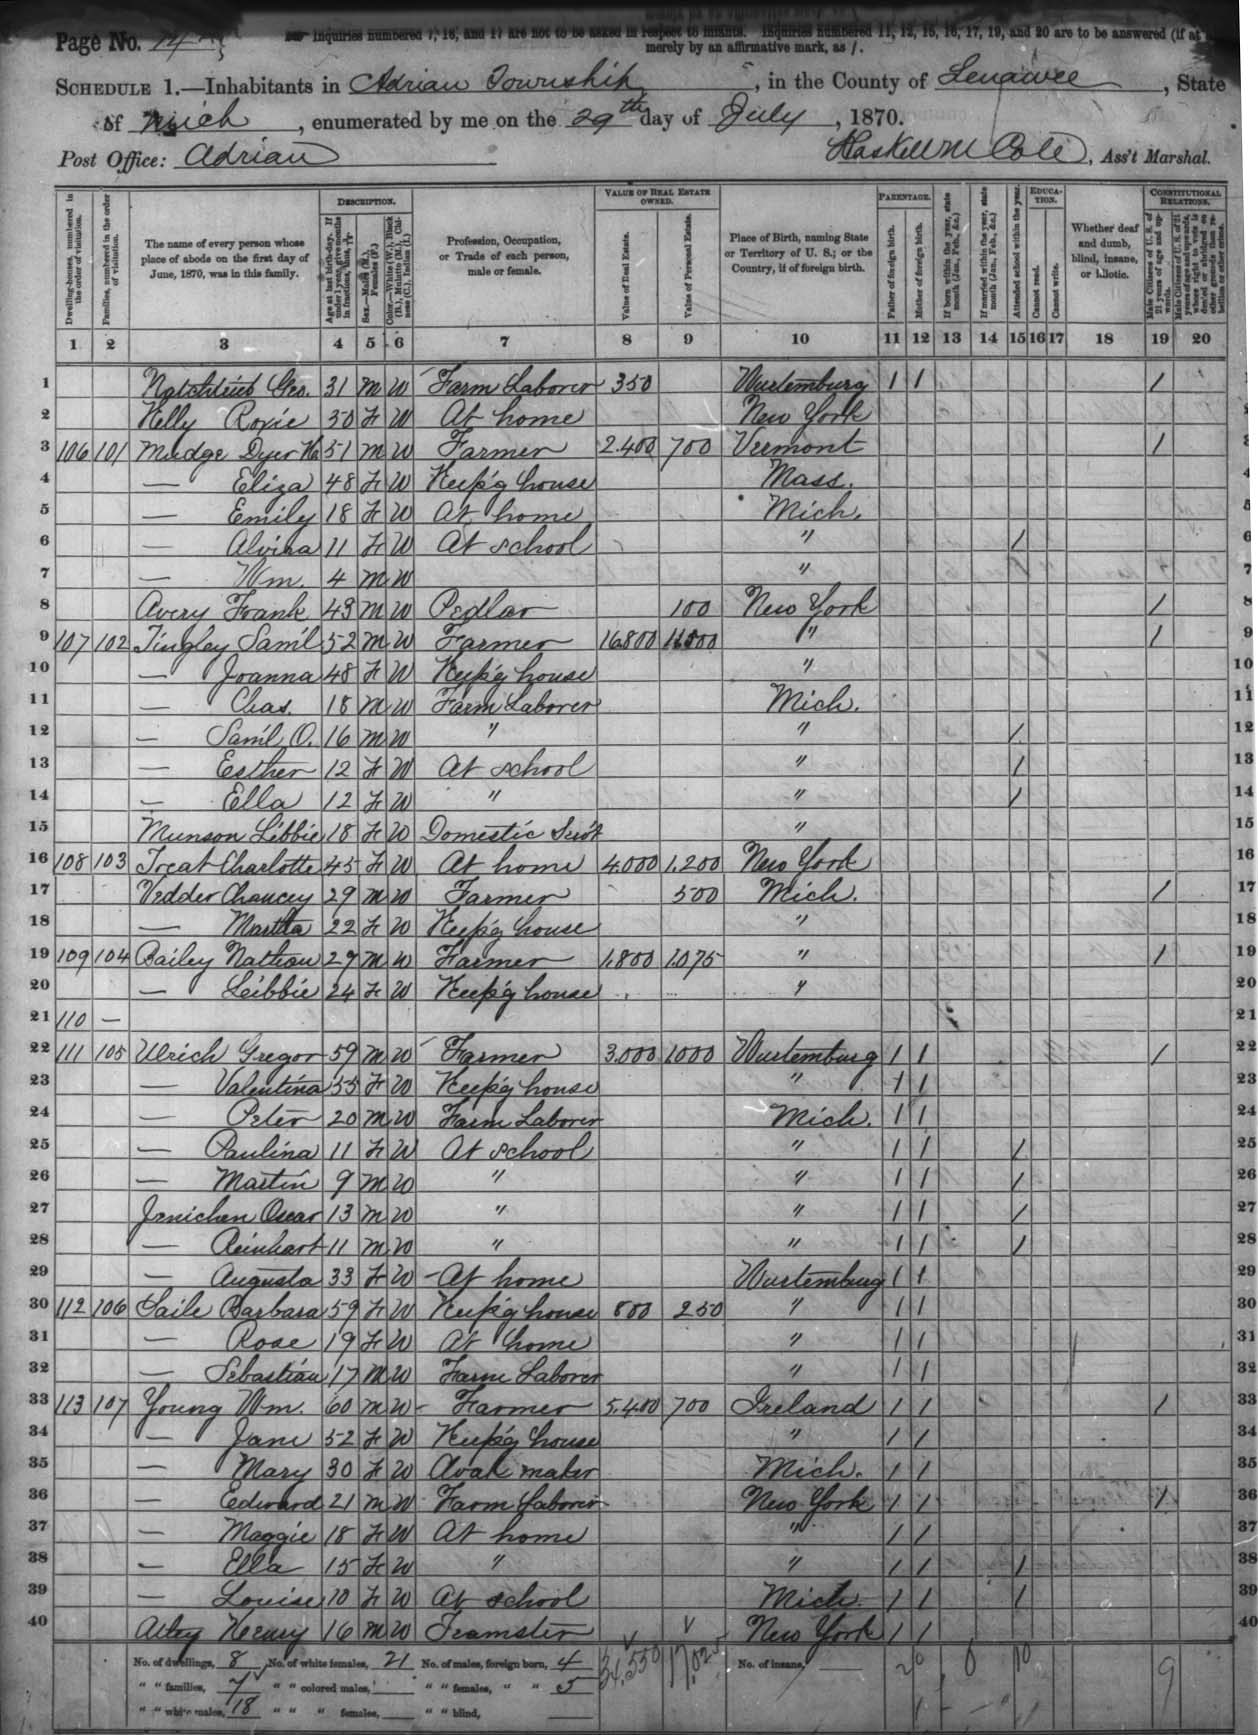 Page No. 74
Inquiries numbered 7, 16, and 17 are not to be asked in respect to infants. Inquiries numbered 11, 12, 15, 16, 17, 19, and 20 are to be answered (if at
merely by an affirmative mark, as /.
SCHEDULE 1.—Inhabitants in Adrian Township, in the County of Lenawee, State
of Mich, enumerated by me on the 29th day of July, 1870.
Post Office: Adrian Haskell M Cole, Ass't Marshal.
Dwelling-houses, numbered in the order of visitation.
Families, numbered in the order of visitation.
The name of every person whose place of abode on the first day of June, 1870, was in this family.
DESCRIPTION.
Age at last birth-day. If under 1 year, give months in fractions, thus,
Sex.—Males (M.), Females (F.)
Color.—White (W.), Black (B.), Mulatto (M.), Chinese (C.), Indian (I.)
Profession, Occupation, or Trade of each person, male or female.
VALUE OF REAL ESTATE OWNED.
Value of Real Estate.
Value of Personal Estate.
Place of Birth, naming State or Territory of U. S.; or the Country, if of foreign birth.
PARENTAGE.
Father of foreign birth.
Mother of foreign birth.
If born within the year, state month (Jan., Feb., &c.)
If married within the year, state month (Jan., Feb., &c.)
Attended school within the year.
EDUCATION.
Cannot read.
Cannot write.
Whether deaf and dumb, blind, insane, or idiotic.
CONSTITUTIONAL RELATIONS.
Male Citizens of U. S. of 21 years of age and upwards.
Male Citizens of U. S. of 21 years of age and upwards, where right to vote is denied or abridged on other grounds than rebellion or other crime.
1 2 3 4 5 6 7 8 9 10 11 12 13 14 15 16 17 18 19 20
1 Geo. 31 M W Farm Laborer 350 Wurtemburg / / / 1
2 Kelly Roxie 50 F W At home New York 2
3 106 101 Mudge Dyer 51 M W Farmer 2.400 700 Vermont / 3
4 — Eliza 48 F W Keep'g house Mass. 4
5 — Emily 18 F W At home Mich. 5
6 — Alvira 11 F W At school " / 6
7 — Wm. 4 M W " 7
8 Avery Frank 43 M W Pedlar 100 New York / 8
9 107 102 Tingley Sam'l 52 M W Farmer 16.800 " / 9
10 — Joanna 48 F W Keep'g house " 10
11 — Chas. 18 M W Farm Laborer Mich. 11
12 — Sam'l O. 16 M W " " / 12
13 — Esther 12 F W At school " / 13
14 — Ella 12 F W " " / 14
15 Munson Libbie 18 F W Domestic Serv't " 15
16 108 103 Treat Charlotte 45 F W At home 4.000 1.200 New York 16
17 Vedder Chancey 29 M W Farmer 500 Mich. / 17
18 — Martha 22 F W Keep'g house " 18
19 109 104 Bailey Nathan 29 M W Farmer 1.800 1.075 " / 19
20 — Leibbie 24 F W Keep'g house " 20
21 110 — 21
22 111 105 Ulrich Gregor 59 M W Farmer 3.000 1000 Wurtemburg / / / 22
23 — Valentina 55 F W Keep'g house " / / 23
24 — Peter 20 M W Farm Laborer Mich. / / 24
25 — Paulina 11 F W At school " / / / 25
26 — Martin 9 M W " " / / / 26
27 Jenichen Oscar 13 M W " " / / / 27
28 — Reinhart 11 M W " " / / / 28
29 — Augusta 33 F W At home Wurtemburg / / 29
30 112 106 Saile Barbara 59 F W Keep'g house 800 250 " / / 30
31 — Rose 19 F W At home " / / 31
32 — Sebastian 17 M W Farm Laborer " / / 32
33 113 107 Young Wm. 60 M W Farmer 5.400 700 Ireland / / / 33
34 — Jane 52 F W Keep'g house " / / 34
35 — Mary 30 F W maker Mich. / / 35
36 — Edward 21 M W Farm Laborer New York / / / 36
37 — Maggie 18 F W At home " / / 37
38 — Ella 15 F W " " / / / 38
39 — Louise 10 F W At school Mich. / / / 39
40 Henry 16 M W Teamster New York / / 40
No. of dwellings, 8 No. of white females, 21 No. of males, foreign born, 4 34,550 17,025 No. of insane, 20 0 10 9
" " families, 7 " " colored males, " " females, " " 5
" " white males, 18 " " " females, " " blind,